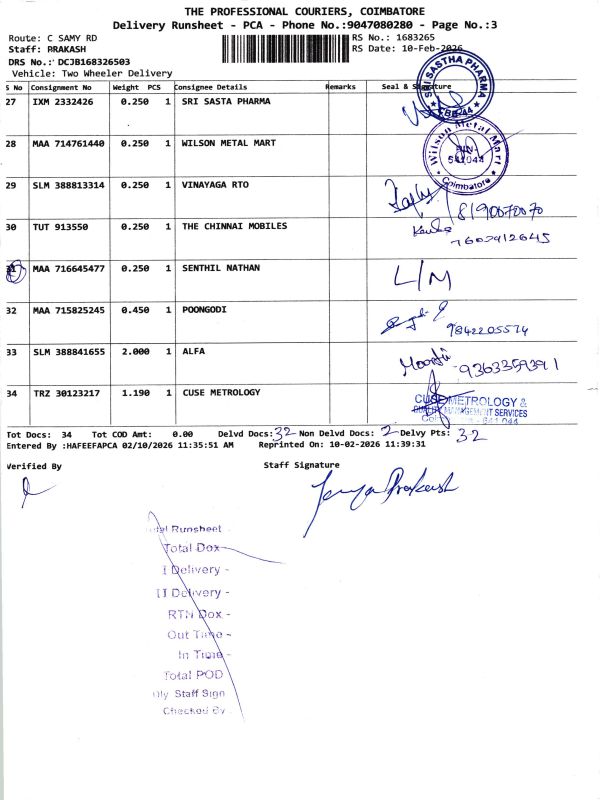 THE PROFESSIONAL COURIERS, COIMBATORE
Delivery Runsheet - PCA - Phone No.:9047080280 - Page No.:3
Route: C SAMY RD RS No.: 1683265
Staff: PRAKASH RS Date: 10-Feb-2026
DRS No.: DCJB168326503
Vehicle: Two Wheeler Delivery
S No Consignment No Weight PCS Consignee Details Remarks Seal & Signature
27 IXM 2332426 0.250 1 SRI SASTA PHARMA
SRI SASTHA PHARMA
28 MAA 714761440 0.250 1 WILSON METAL MART
Wilson Metal Mart
641044
Coimbatore
29 SLM 388813314 0.250 1 VINAYAGA RTO
8190070070
30 TUT 913550 0.250 1 THE CHINNAI MOBILES
7603912645
31 MAA 716645477 0.250 1 SENTHIL NATHAN L/M
32 MAA 715825245 0.450 1 POONGODI
9842205574
33 SLM 388841655 2.000 1 ALFA
9363359391
34 TRZ 30123217 1.190 1 CUSE METROLOGY
CUSE METROLOGY &
QUALITY MANAGEMENT SERVICES
Tot Docs: 34 Tot COD Amt: 0.00 Delvd Docs: 32 Non Delvd Docs: 2 Delvy Pts: 32
Entered By :HAFEEFAPCA 02/10/2026 11:35:51 AM Reprinted On: 10-02-2026 11:39:31
Verified By Staff Signature
Prakash
Total Runsheet -
Total Dox -
I Delivery -
II Delivery -
RTN Dox -
Out Time -
In Time -
Total POD
Dly Staff Sign
Checked By -